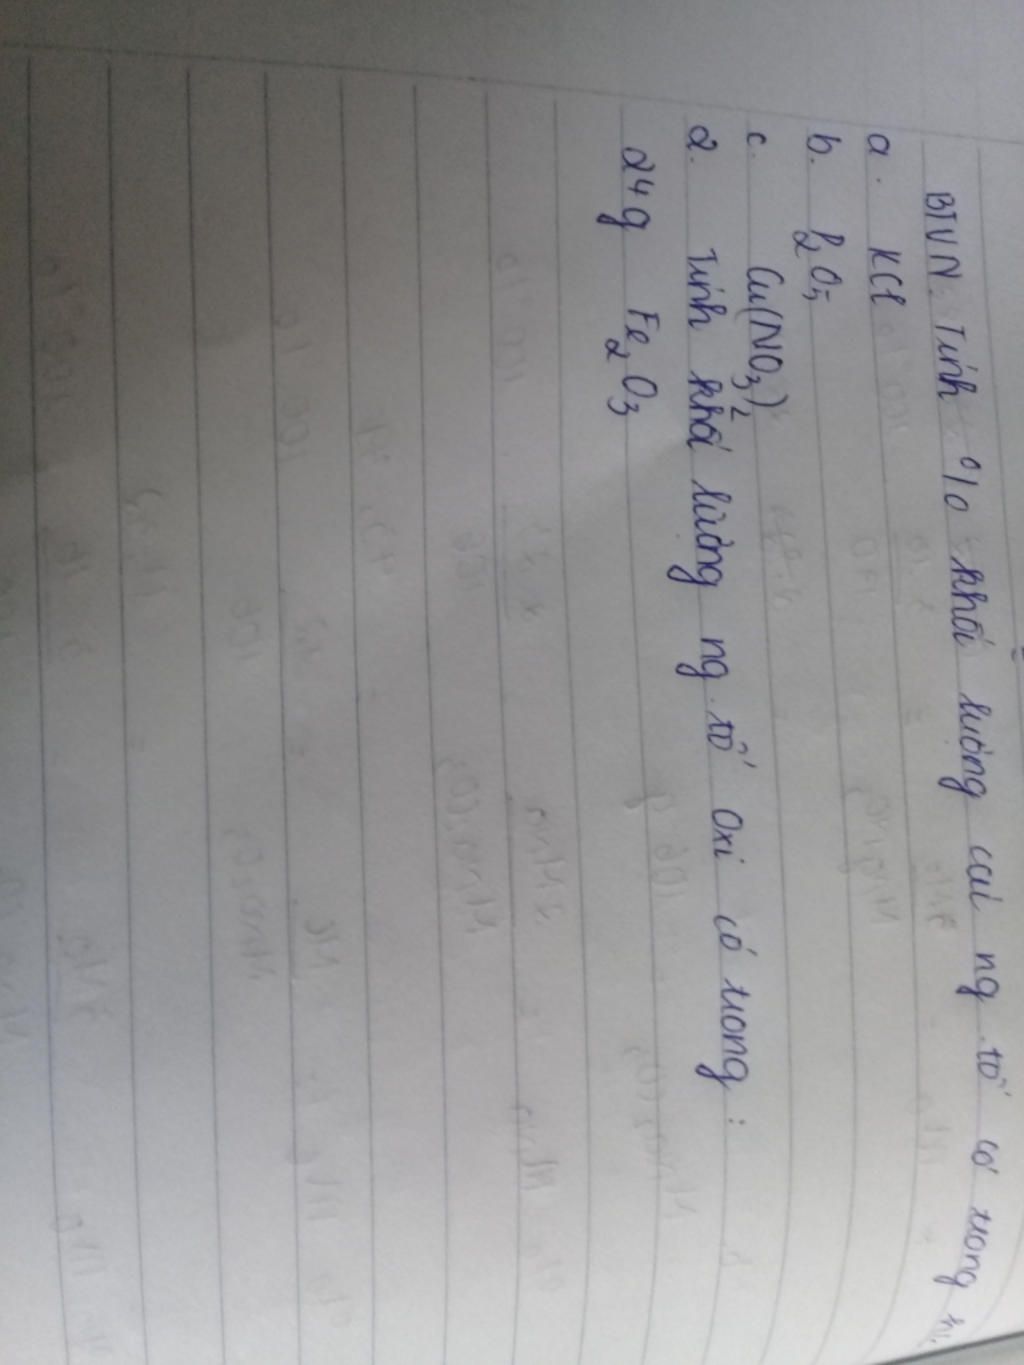 BTVN: Tính % khối lượng các ng.tố có trong
a. KCl
b. P₂O₅
c. Cu(NO₃)₂
2. Tính khối lượng ng.tố oxi có trong:
24g Fe₂O₃